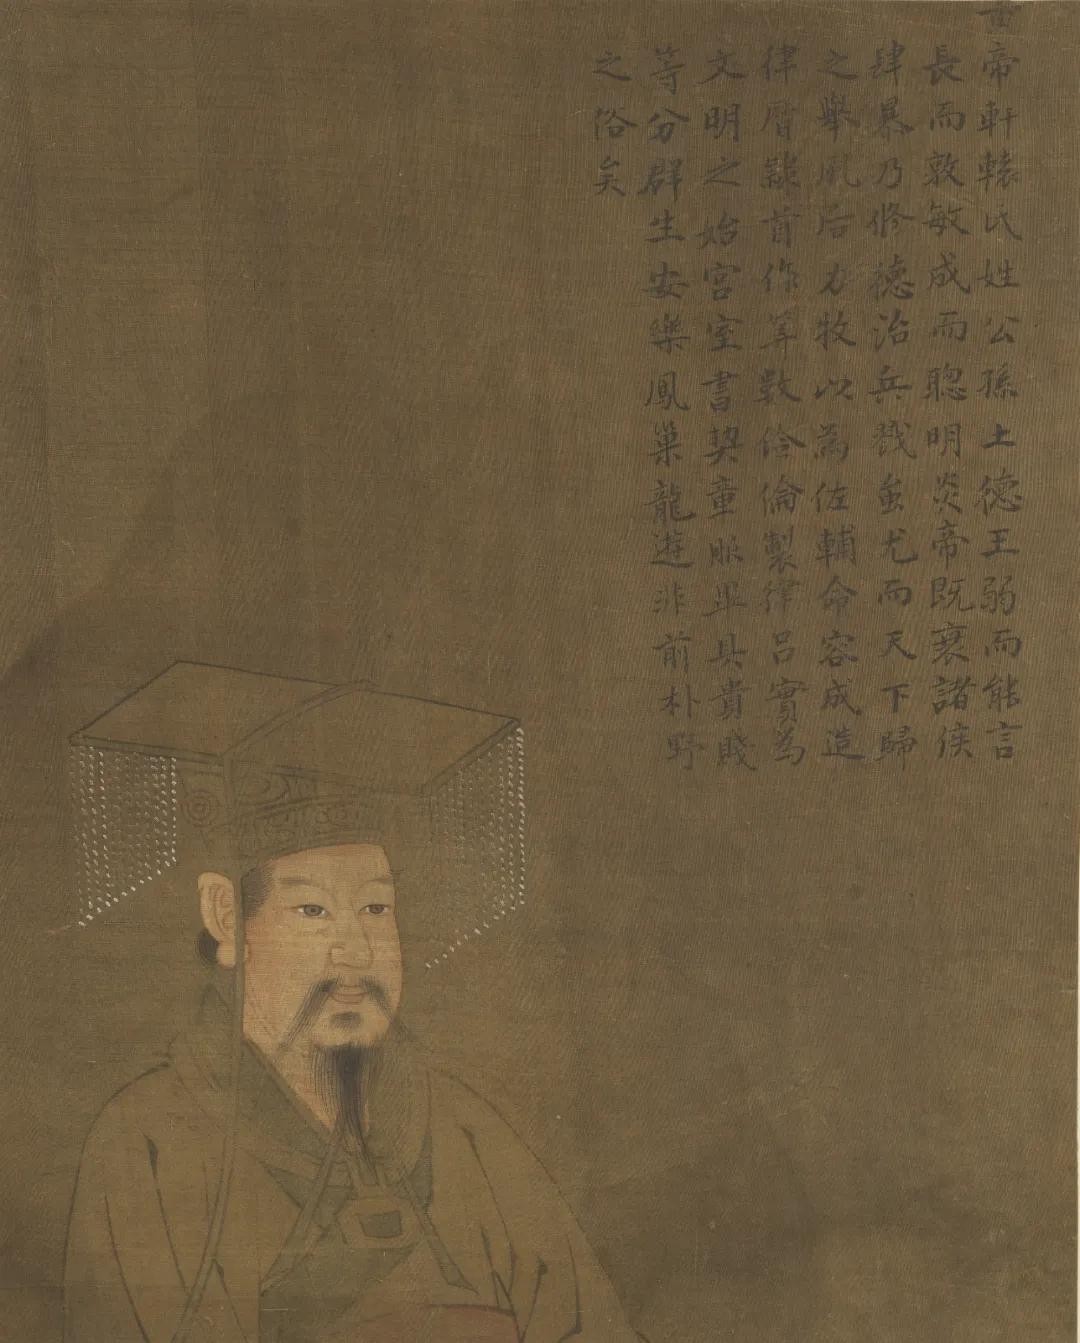 黃帝軒轅氏姓公孫土德王弱而能言
長而敦敏成而聰明炎帝既衰諸侯
肆暴乃修德治兵戮蚩尤而天下歸
之舉風后力牧以為佐輔命容成造
律曆隸首作筭數伶倫製律呂實為
文明之始宮室書契童眂畢具貴賤
等分群生安樂鳳巢龍遊非前朴野
之俗矣